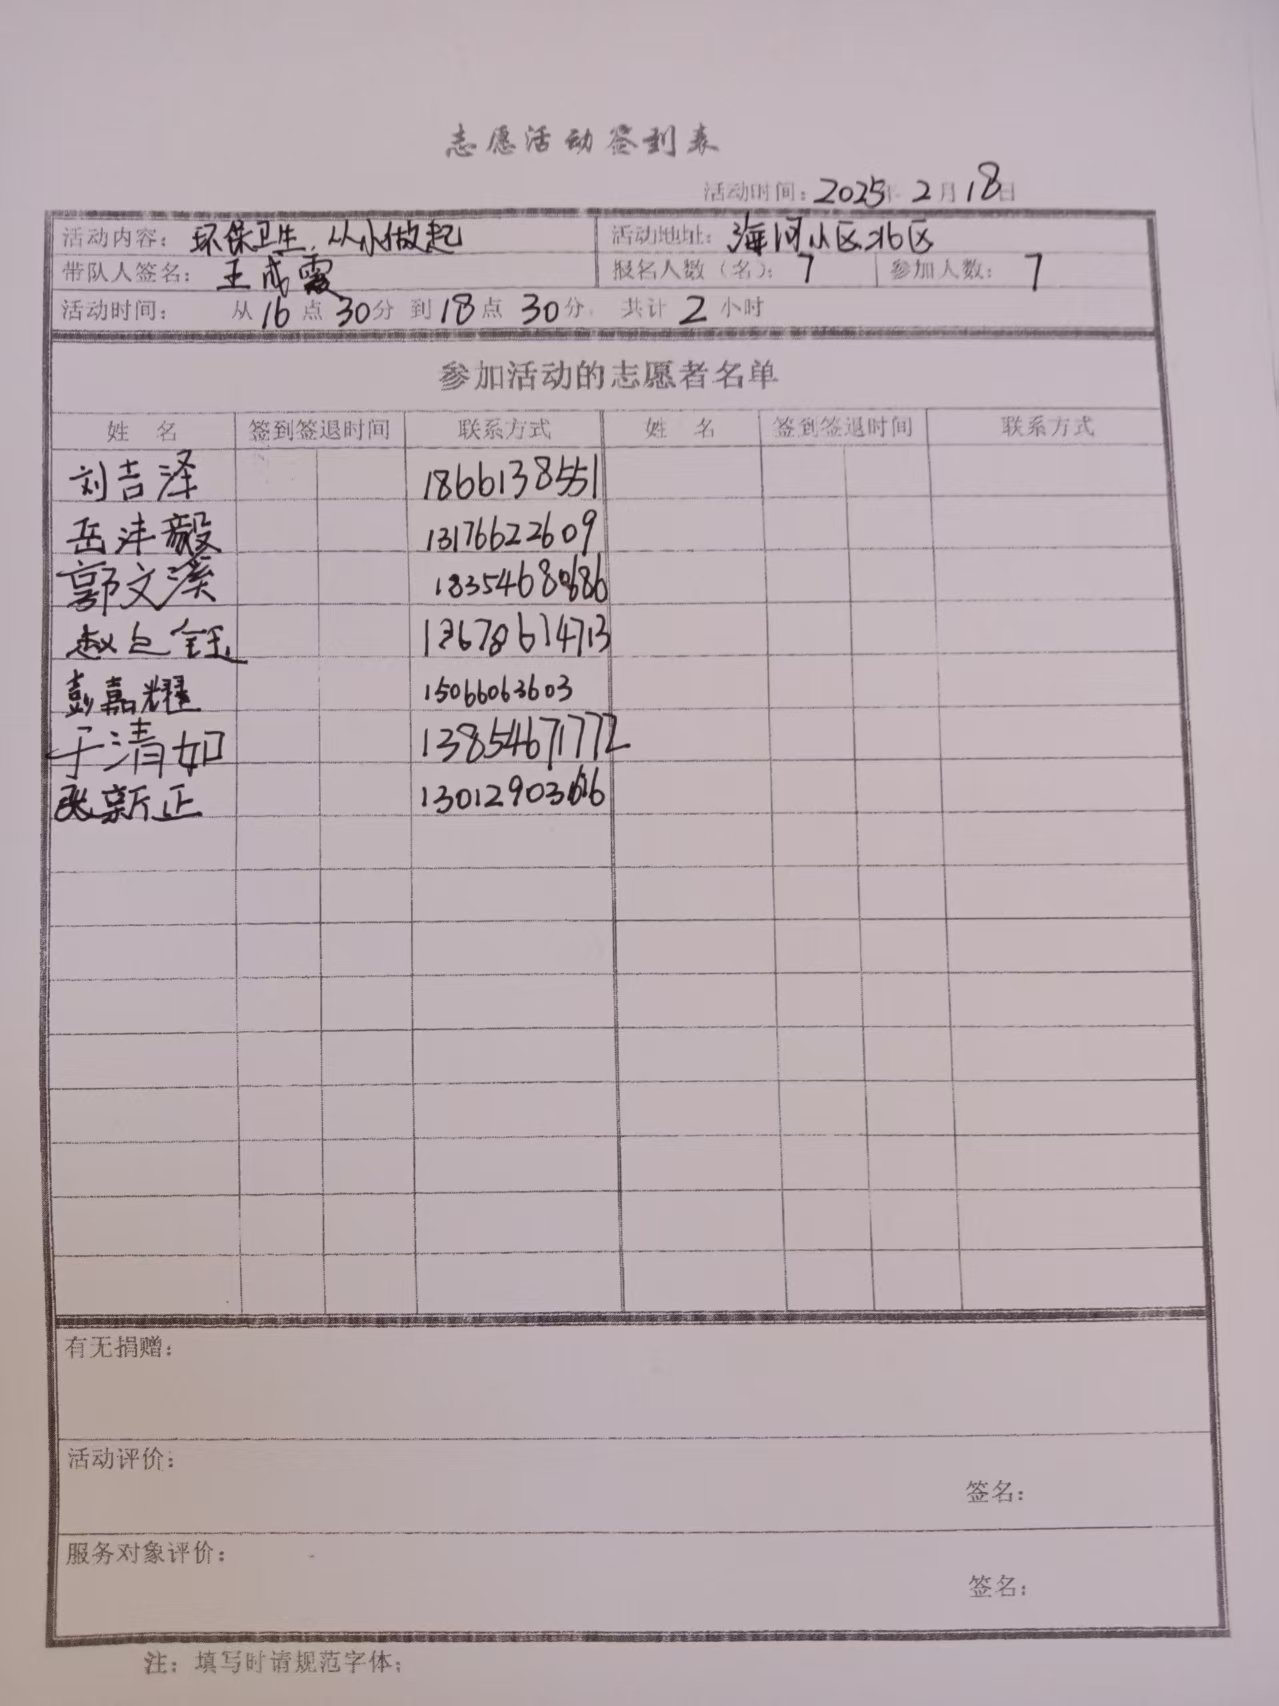 志愿活动签到表
活动时间：2025年 2月18日
活动内容：环保卫生，从小做起 活动地址：海河小区北区
带队人签名：王成霞 报名人数（名）：7 参加人数：7
活动时间： 从16点30分 到18点30分，共计2小时
参加活动的志愿者名单
姓 名 签到签退时间 联系方式 姓 名 签到签退时间 联系方式
刘吉泽 18661385551
岳沣毅 13176622609
郭文溪 18354680686
赵 钰
彭嘉耀 15066063603
于清如 13854671772
张新正
有无捐赠：
活动评价：
签名：
服务对象评价：
签名：
注：填写时请规范字体；